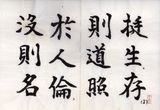 挺生存
則道照
於人倫
沒則名